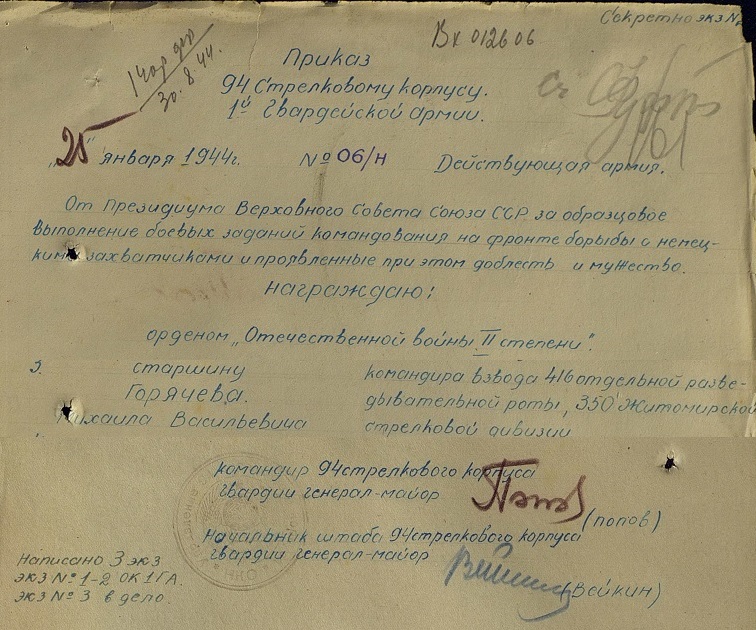 Секретно экз №2
Вх 012606
30.8.44.
Приказ
94 Стрелковому корпусу.
1й Гвардейской армии.
„25" января 1944г. № 06/н Действующая армия.
От Президиума Верховного Совета Союза ССР за образцовое
выполнение боевых заданий командования на фронте борьбы с немец-
кими захватчиками и проявленные при этом доблесть и мужество.
награждаю:
орденом „Отечественной войны II степени".
старшину командира взвода 416 отдельной разве-
Горячева. дывательной роты, 350 Житомирской
Михаила Васильевича стрелковой дивизии
командир 94 стрелкового корпуса
гвардии генерал-майор
(попов)
Начальник штаба 94 стрелкового корпуса
гвардии генерал-майор
(Вейкин)
Написано 3 экз
экз № 1-2 ОК 1ГА.
экз № 3 в дело.